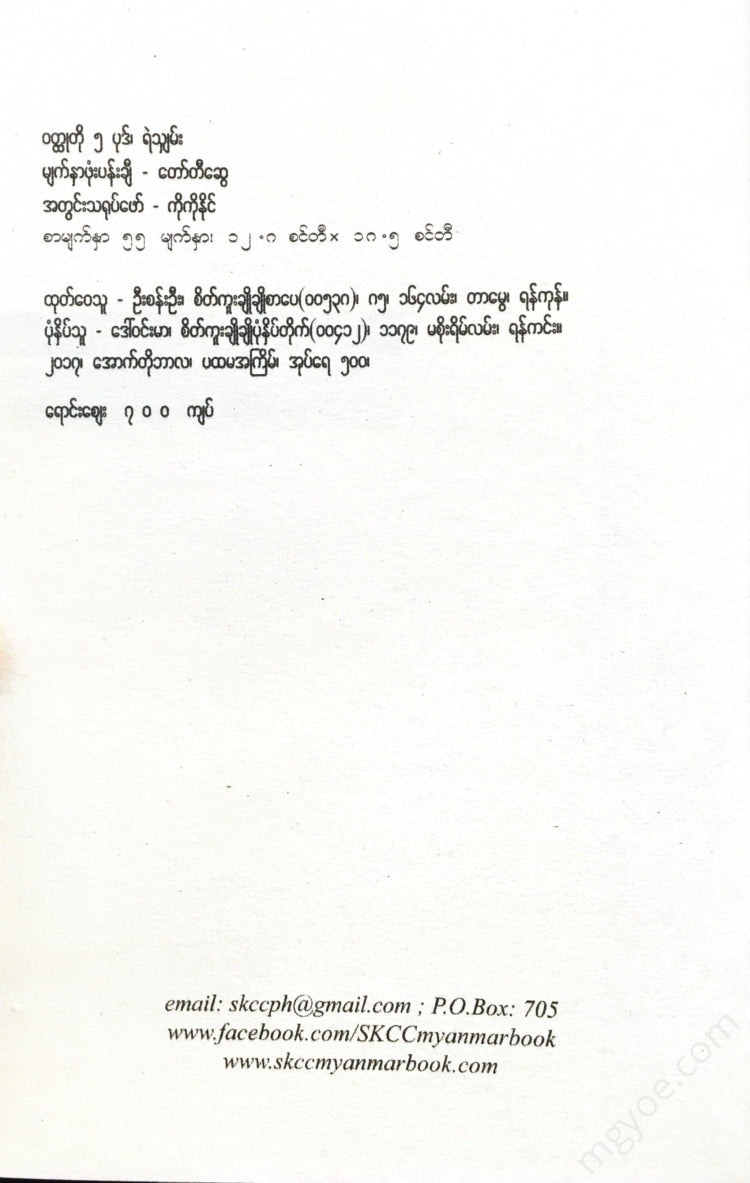 ဝတ္ထုတို ၅ ပုဒ်၊ ရဲသျှမ်း
မျက်နှာဖုံးပန်းချီ - တော်တီဆွေ
အတွင်းသရုပ်ဖော် - ကိုကိုနိုင်
စာမျက်နှာ ၅၅ မျက်နှာ၊ ၁၂.၈ စင်တီ× ၁၈.၅ စင်တီ
ထုတ်ဝေသူ - ဦးစန်းဦး၊ စိတ်ကူးချိုချိုစာပေ(၀၀၅၃၈)၊ ၈၅၊ ၁၆၄လမ်း၊ တာမွေ၊ ရန်ကုန်။
ပုံနှိပ်သူ - ဒေါ်ဝင်းမာ၊ စိတ်ကူးချိုချိုပုံနှိပ်တိုက်(၀၀၄၁၂)၊ ၁၁၇၉၊ မစိုးရိမ်လမ်း၊ ရန်ကင်း။
၂၀၁၇၊ အောက်တိုဘာလ၊ ပထမအကြိမ်၊ အုပ်ရေ ၅၀၀၊
ရောင်းဈေး ၇ ၀ ၀ ကျပ်
email: skccph@gmail.com ; P.O.Box: 705
www.facebook.com/SKCCmyanmarbook
www.skccmyanmarbook.com
mgyoe.com